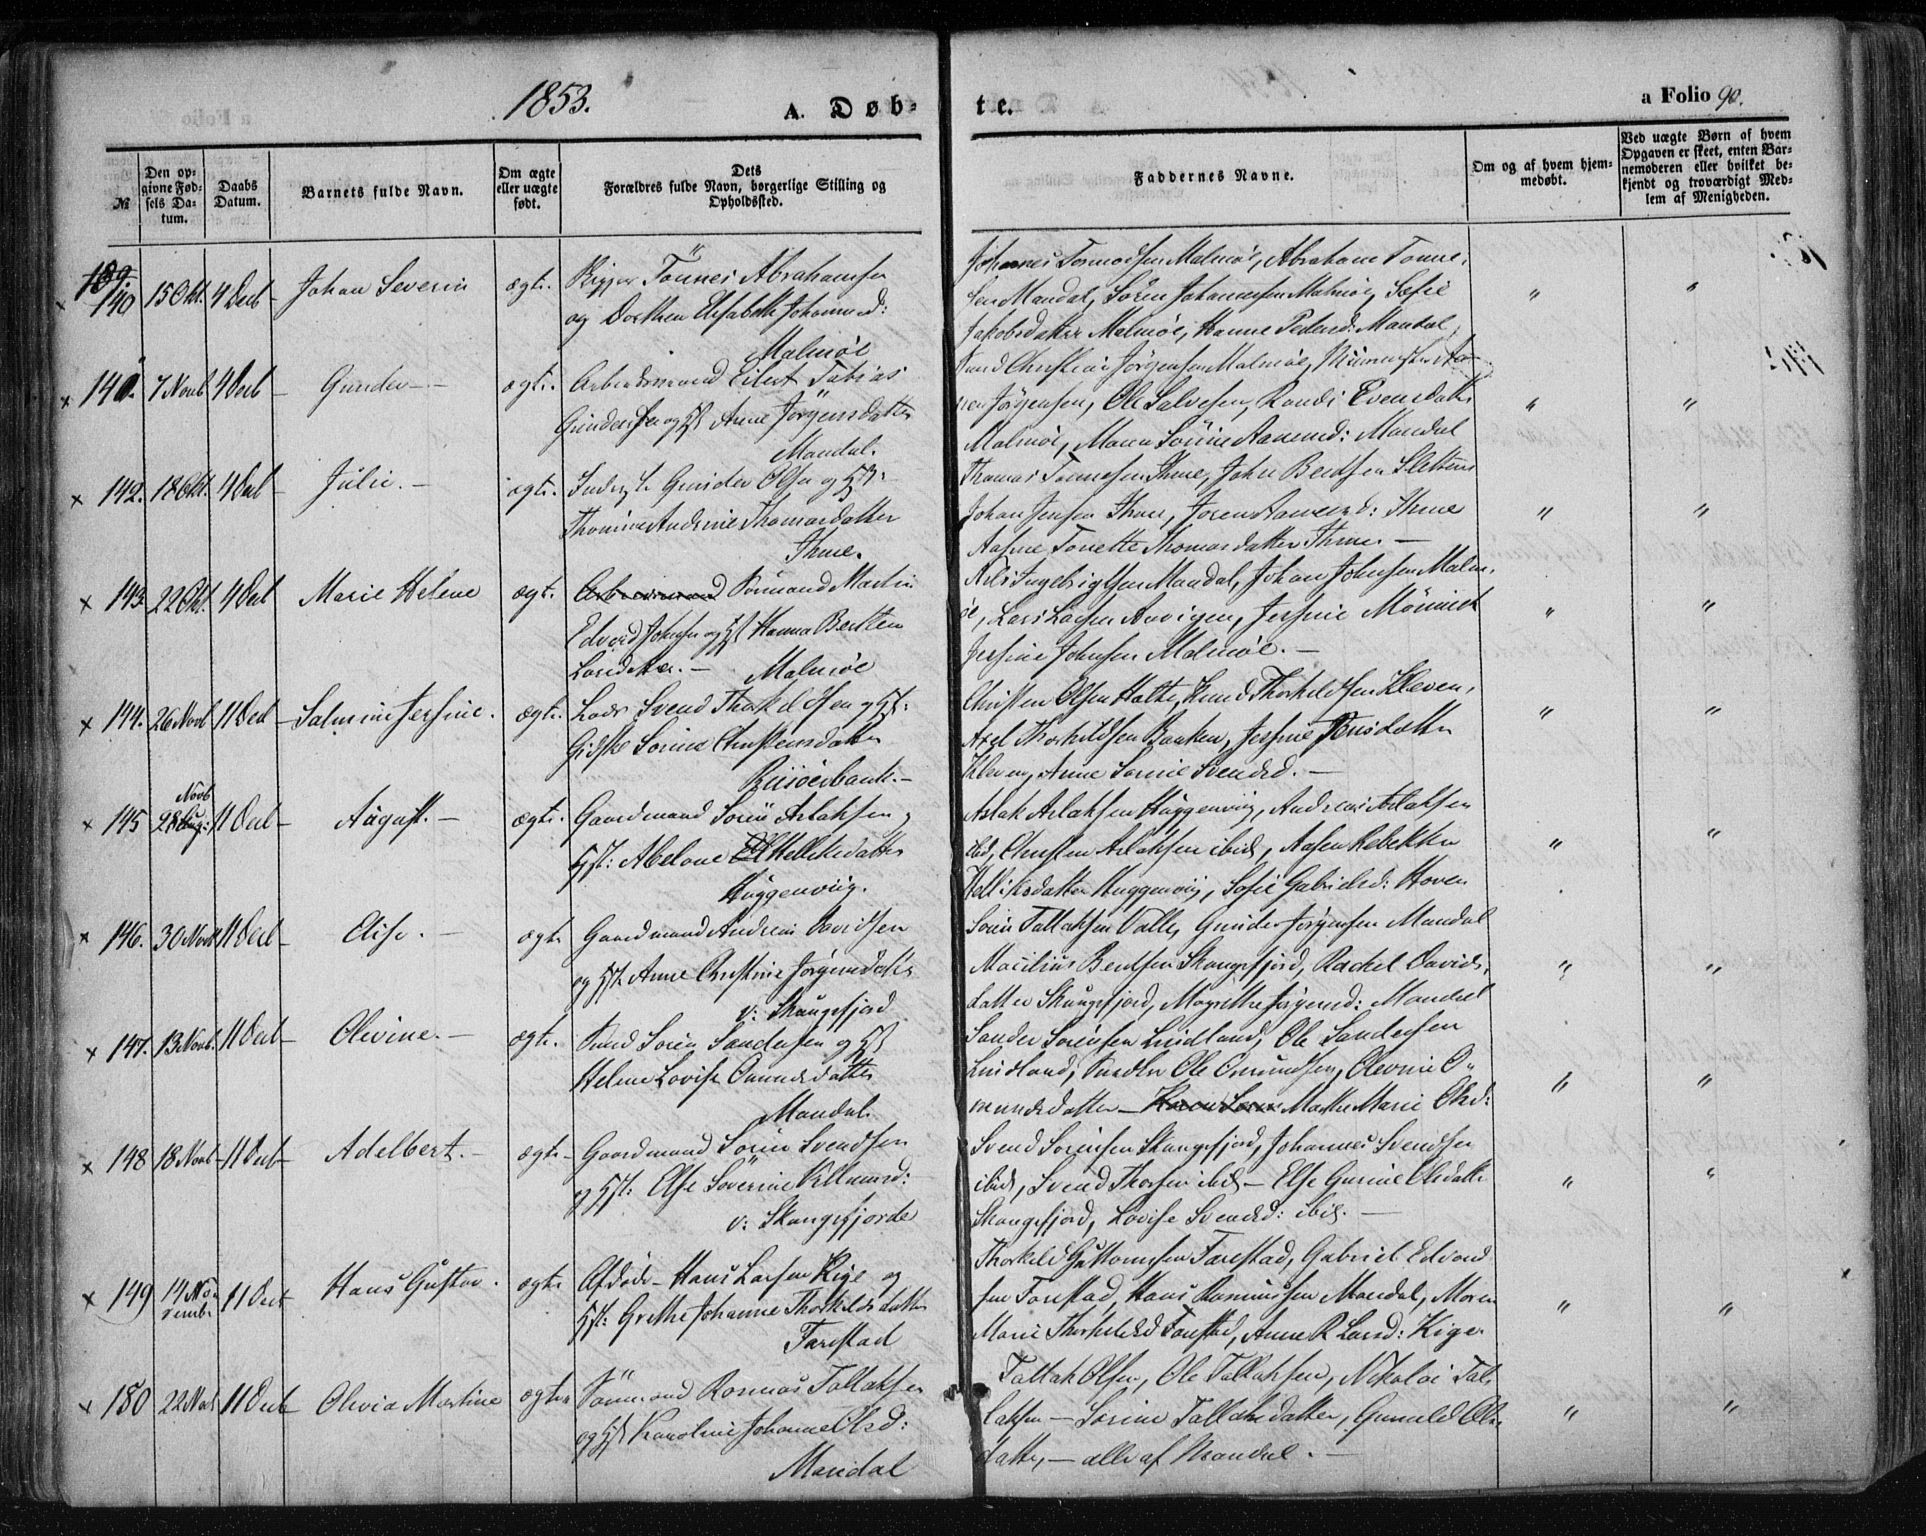 1853.
A. Døb-
te.
a Folio 90.
№
Den op-
givne Fød-
sels Da-
tum.
Daabs
Datum.
Barnets fulde Navn.
Om ægte
eller uægte
født.
Dets
Forældres fulde Navn, borgerlige Stilling og
Opholdssted.
Faddernes Navne.
Om og af hvem hjem-
medøbt.
Ved uægte Børn af hvem
Opgaven er skeet, enten Bar-
nemoderen eller hvilket be-
kjendt og troværdigt Med-
lem af Menigheden.
140 15 Okt. 4 Decb Johan Severin ægte. Tönnes Abrahamsen
og Dorthea Elisabeth Johannesd:
Malmöe
Johannes Tormodsen Malmöe, Abraham Tönne-
sen Mandal, Sören Johannesen Malmöe, Sofie
Jakobsdatter Malmöe, Hanne Pedersd: Mandal
141. 7 Novb 4 Decb Gunder ægte. Arbeidsmand Eilert Tobias
Gundersen og Hst Anne Jörgensdatter
Mandal.
Christian Jörgensen Malmöe,
Jörgensen, Ole Salvesen, Randi Evensdatter
Malmöe, Maren Sörine Aanensd: Mandal
142. 18 Okt. 4 Decb Julie. ægte. Gunder Olsen og Hst:
Thomine Andrine Thomasdatter
Ihme.
Thomas Tönnesen Ihme, John Berntsen Sletten
Johan Jensen Ihme, Aanensd: Ihme
Tonette Thomasdatter Ihme.
143. 22 Okt. 4 Decb Marie Helene ægte. Sömand Martin
Edvard Johnsen og Hst Hanna Berthea
Larsdatter. Malmöe
Nils Ingebrigtsen Mandal, Johan Johnsen Malm-
öe, Lars Larsen Aavigen, Jersine
Jersine Johnsen Malmöe.
144. 26 Novb 11 Decb Salmine Jersine. ægte. Lods Svend Thorkildsen og Hst:
Gidske Sorine Christensdatter
Risöerbank.
Christen Olsen Hatte, Knud Thorkildsen Kleven,
Axel Thorkildsen Banken, Jersine
Kleven, Anne Sörine Svendsd.
145 28 Novb 11 Decb August. ægte. Gaardmand Sören Aslaksen og
Hst: Abelone Helliksdatter
Huggenviig.
Aslak Aslaksen Huggenviig, Andreas Aslaksen
ibid, Christen Aslaksen ibid, Aasen Rebekka
Helliksdatter Huggenviig, Sofie Gabrielsd: Hoven
146. 30 Novb 11 Decb Elise. ægte Gaardmand Andreas Davidsen
og Hst. Anne Christine Jörgensdatter
v: Skougsfjord
Sören Tallaksen Valle, Gunder Jörgensen Mandal
Berntsen Skougsfjord, Rachel Davids-
datter Skougsfjord, Magrethe Jörgensd: Mandal
147. 13 Novb. 11 Decb Olevine. ægte. Smed Sören Sandersen og Hst
Helene Lovise Omundsdatter
Mandal.
Sander Sörensen Lindland, Ole Sandersen
Lindland, Ole Omundsen, Olevine O-
mundsdatter Marthe Marie Olsd:
148 18 Novb 11 Decb Adelbert. ægte Gaardmand Sören Svendsen
og Hst: Else Severine
v: Skougsfjorde
Svend Sörensen Skougsfjord, Johannes Svendsen
ibid, Svend Thorsen ibid Else Gurine Olsdatter
Skougsfjord, Lovise Svendsd: ibid.
149 14 No-
vembr 11 Decb Hans Gustav. ægte Afdöde Hans Larsen Kige og
Hst: Grethe Johanne Thorkildsdatter
Farestad
Thorkild Guttormsen Farestad, Gabriel Edvard
sen Farestad, Hans Rasmussen Mandal, Maren
Marie Thorkildsd Farestad, Anne R Larsd: Kige.
150 22 Novb 11 Decb Olivia Martine ægte Sömand Rasmus Tallaksen
og Hst Karoline Johanne Olsd:
Mandal
Tallak Olsen, Ole Tallaksen, Nikolai Tal-
laksen Sörine Tallaksdatter, Gunild Ols-
datter, alle af Mandal.